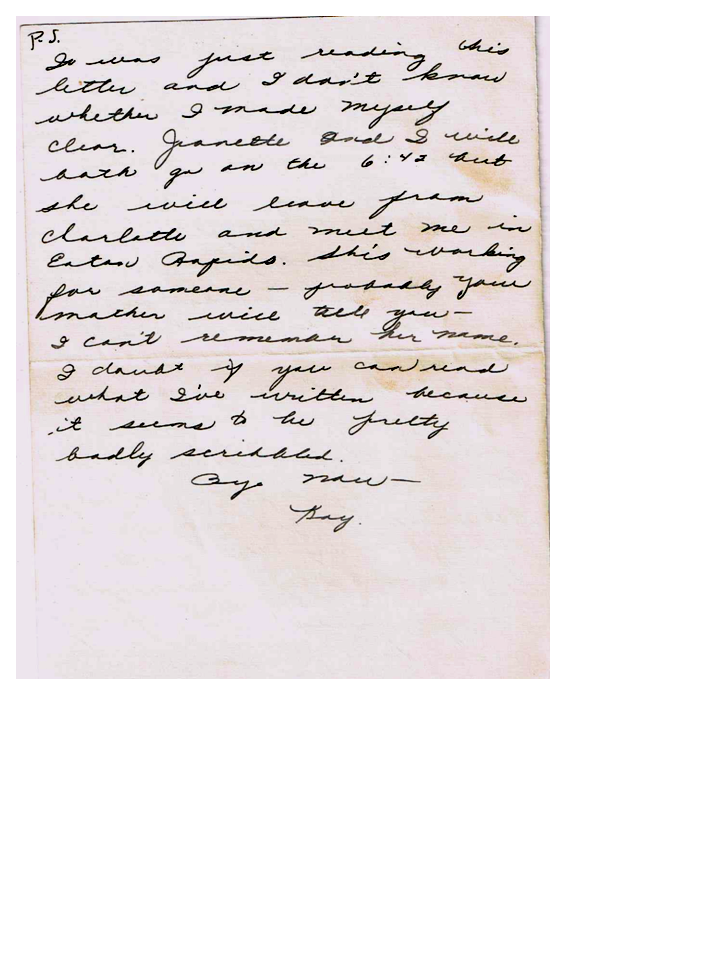 P.S.
I was just reading this
letter and I don't know
whether I made myself
clear. Jeanette and I will
both go on the 6:42 but
she will leave from
Charlotte and meet me in
Eaton Rapids. She's working
for someone — probably your
mother will tell you —
I can't remember her name.
I doubt if you can read
what I've written because
it seems to be pretty
badly scribbled.
Bye now —
Kay.